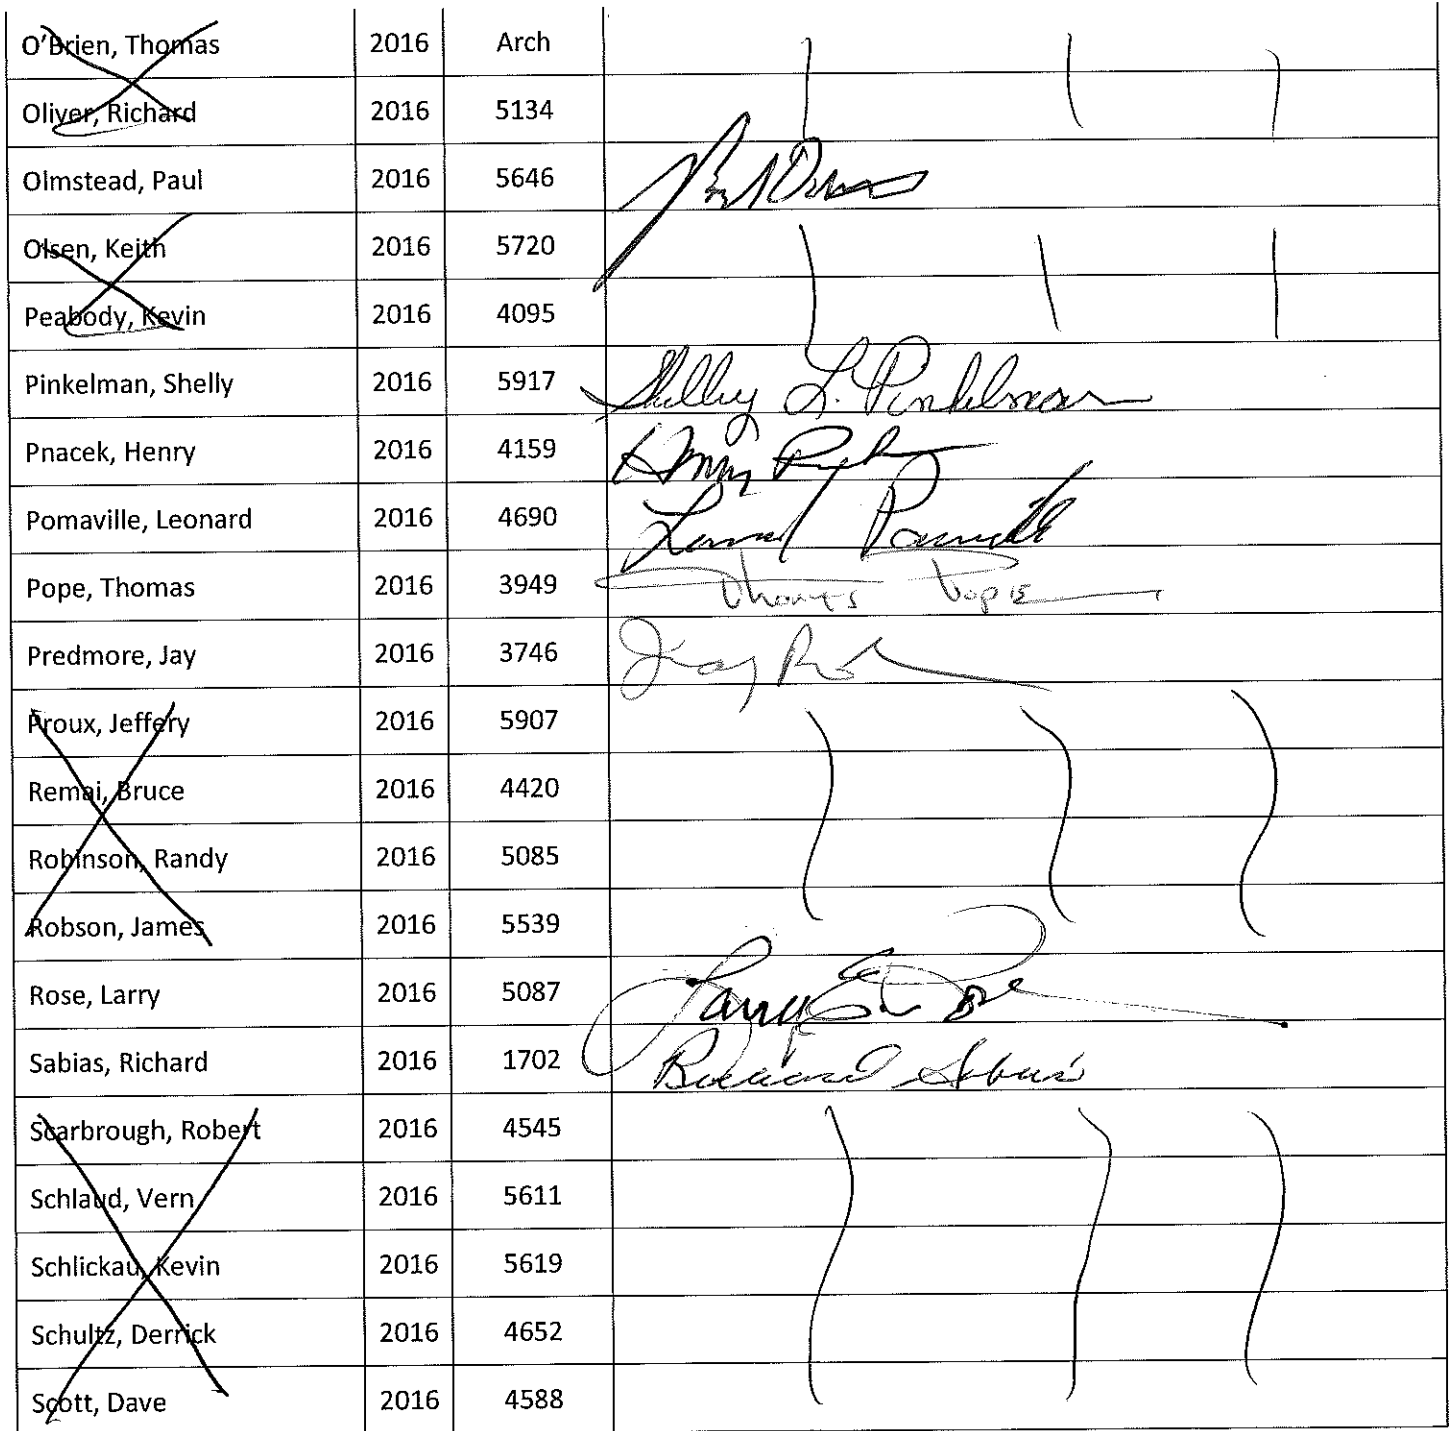 O'Brien, Thomas 2016 Arch
Oliver, Richard 2016 5134
Olmstead, Paul 2016 5646
Olsen, Keith 2016 5720
Peabody, Kevin 2016 4095
Pinkelman, Shelly 2016 5917 Shelley L. Pinkelman
Pnacek, Henry 2016 4159 Henry
Pomaville, Leonard 2016 4690
Pope, Thomas 2016 3949 Thomas Pope
Predmore, Jay 2016 3746 Jay
Proux, Jeffery 2016 5907
Remai, Bruce 2016 4420
Robinson, Randy 2016 5085
Robson, James 2016 5539
Rose, Larry 2016 5087 Larry
Sabias, Richard 2016 1702 Richard Sabias
Scarbrough, Robert 2016 4545
Schlaud, Vern 2016 5611
Schlickau, Kevin 2016 5619
Schultz, Derrick 2016 4652
Scott, Dave 2016 4588